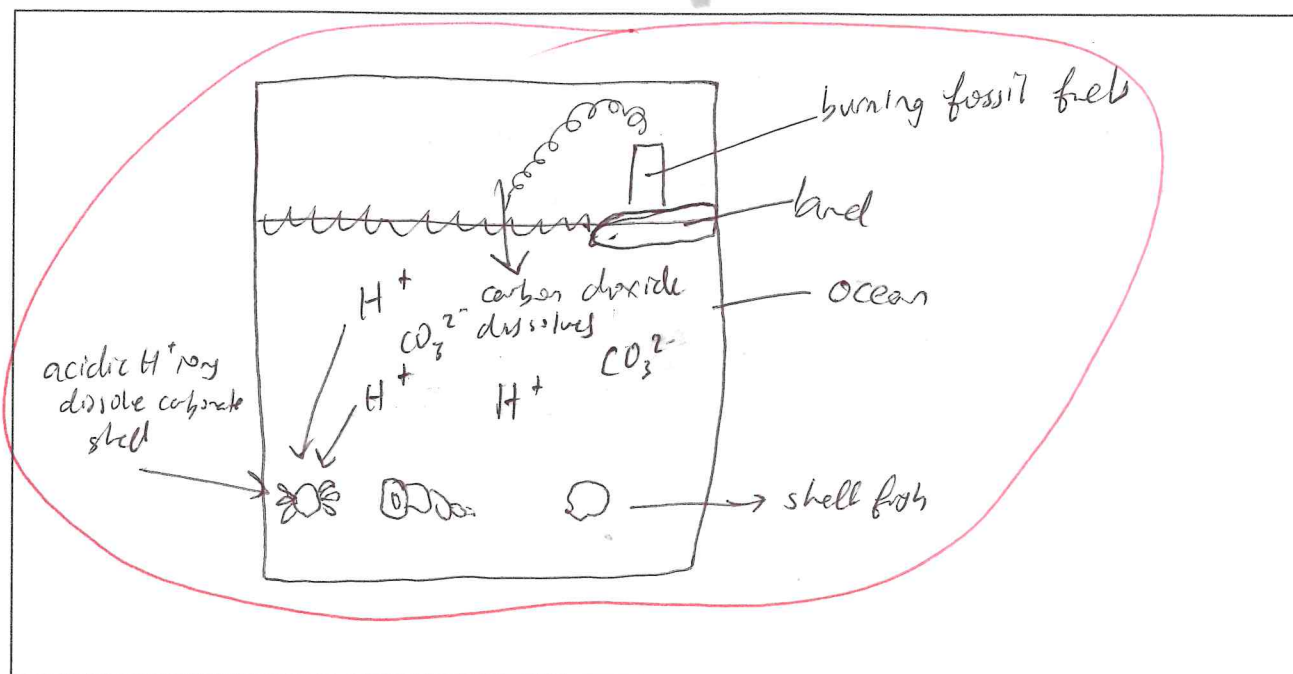 burning fossil fuels
land
ocean
H⁺
carbon dioxide
dissolves
CO₃²⁻
CO₃²⁻
H⁺
H⁺
acidic H⁺ ions
dissolve carbonate
shell
shell fish